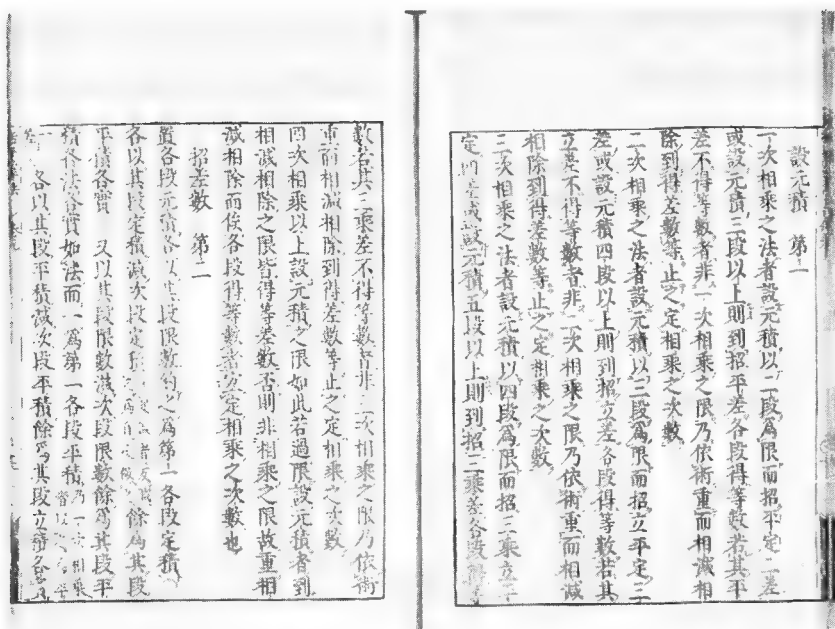 設元積　第一
一次相乘之法者設元積以二段爲限而招平定二差
或設元積三段以上則到招平差各段得等數若其平
差不得等數者非一次相乘之限乃依術重而相減相
除到得差數等止之定相乘之次數
二次相乘之法者設元積以三段爲限而招立平定三
差或設元積四段以上則到招立差各段得等數若其
立差不得等數者非二次相乘之限乃依術重而相減
相除到得差數等止之定相乘之次數
三次相乘之法者設元積以四段爲限而招三乘立平
定差或設元積五段以上則到招三乘差各段等
數若其三乘差不得等數者非三次相乘之限乃依術
重而相減相除到得差數等止之定相乘之次數
四次相乘以上設元積之限如此若過限設元積者到
相減相除之限皆得等差數否則非相乘之限故重相
減相除而俟各段得等數者定相乘之次數也
招差數　第二
置各段元積各以其段限數約之爲第一各段定積
各以其段定積減次段定積餘爲其段
平積各實　又以其段限數減次段限數餘爲其段平
積各法各實如法而一爲第一各段平積乃一次相乘
各以其段平積減次段平積餘爲其段立積各實